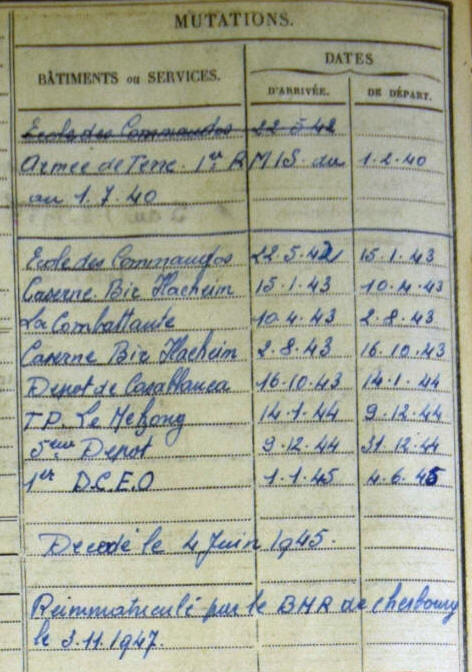 MUTATIONS.
BÂTIMENTS ou SERVICES.
DATES
D'ARRIVÉE.
DE DÉPART.
Ecole des Commandos 22-5-42
Armée de Terre. 1er R MIS. du 1.2.40
au 1.7.40
Ecole des Commandos 22.5.42 15.1.43
Caserne Bir Hacheim 15.1.43 10.4.43
La Combattante 10.4.43 2.8.43
Caserne Bir Hacheim 2.8.43 16.10.43
Depot de Casablanca 16.10.43 14.1.44
T.P. Le Mekong 14.1.44 9.12.44
5eme Depot 9.12.44 31.12.44
1er D.C.E.O 1.1.45 4.6.45
Décédé le 4 Juin 1945.
Reimmatriculé par le BMR de Cherbourg
le 3.11.1947.